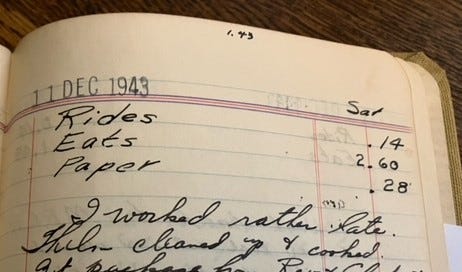 1.43
11 DEC 1943 Sat
Rides .14
Eats 2.60
Paper .28
I worked rather late.
cleaned up & cooked.
package